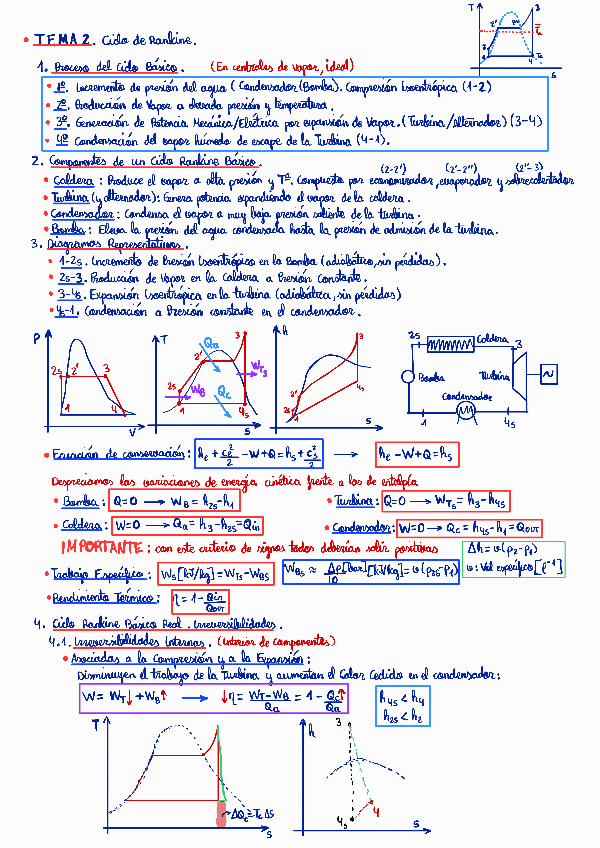 • TEMA 2. Ciclo de Rankine.
1. Proceso del Ciclo Básico. (En centrales de vapor, ideal)
• 1º. Incremento de presión del agua (Condensador (Bomba). Compresión Isoentrópica (1-2)
• 2º. Producción de Vapor a elevada presión y temperatura.
• 3º. Generación de Potencia Mecánica/Elétrica por expansión de Vapor. (Turbina/Alternador) (3-4)
• 4º Condensación del vapor húmedo de escape de la Turbina (4-1).
2. Componentes de un Ciclo Rankine Básico.
(2-2') (2'-2'') (2''-3)
• Caldera: Produce el vapor a alta presión y Tª. Compuesto por economizador, evaporador y sobrecalentador
• Turbina (y alternador): Genera potencia expandiendo el vapor de la caldera.
• Condensador: Condensa el vapor a muy baja presión saliente de la turbina.
• Bomba: Eleva la presión del agua condensada hasta la presión de admisión de la turbina.
3. Diagramas Representativos.
• 1-2s. Incremento de Presión Isoentrópico en la Bomba (adiabático, sin pérdidas).
• 2s-3. Producción de Vapor en la Caldera a Presión Constante.
• 3-4s. Expansión Isoentrópica en la turbina (adiabática, sin pérdidas)
• 4s-1. Condensación a Presión constante en el condensador.
P 2s 2' 3 1 4 V
T Qa 3 2' 2s WB WTs Qc 1 4s S
h 3 2' 2s 1 4s S
2s Caldera 3 Bomba Turbina Condensador 1 4s
• Ecuación de conservación: he + ce²/2 - W + Q = hs + cs²/2 → he - W + Q = hs
Despreciamos las variaciones de energía cinética frente a las de entalpía
• Bomba: Q=0 → WB = h2s-h1 • Turbina: Q=0 → WTs = h3-h4s
• Caldera: W=0 → Qa = h3-h2s = Qin • Condensador: W=0 → Qc = h4s-h1 = Qout
IMPORTANTE: con este criterio de signos todos deberían salir positivas
Δh = v(p2-p1)
v: Vol específico [l⁻¹]
• Trabajo Específico: Ws [kJ/kg] = WTs - WBs WBs ≈ Δp[bar]/10 [kJ/kg] = v(p2s-p1)
• Rendimiento Térmico: η = 1 - Qin/Qout
4. Ciclo Rankine Básico Real. Irreversibilidades.
4.1. Irreversibilidades Internas. (Interior de componentes)
• Asociadas a la Compresión y a la Expansión:
Disminuyen el trabajo de la Turbina y aumentan el Calor Cedido en el condensador:
W = WT↓ + WB↑ → ↓η = WT-WB/Qa = 1 - Qc↑/Qa
h4s < h4
h2s < h2
T ΔQc = Tc ΔS S
h 3 4s 4 S